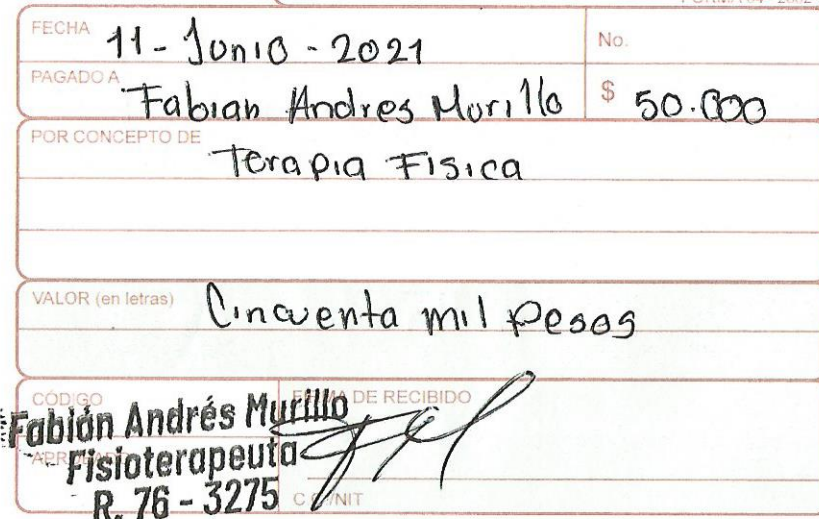 FECHA 11 - Junio - 2021
No.
PAGADO A Fabian Andres Murillo $ 50.000
POR CONCEPTO DE
Terapia Fisica
VALOR (en letras) Cincuenta mil pesos
CÓDIGO
DE RECIBIDO
Fabián Andrés Murillo
Fisioterapeuta
R. 76 - 3275